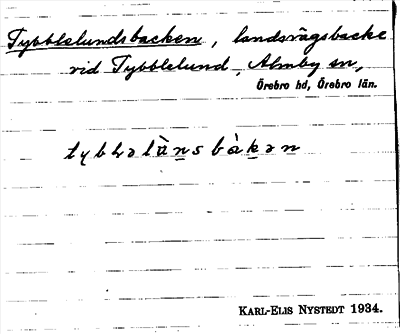 Tybblelundsbacken, landsvägsbacke
vid Tybblelund, Almby sn,
Örebro hd, Örebro län.
tybləlànsbàkən
KARL-ELIS NYSTEDT 1934.